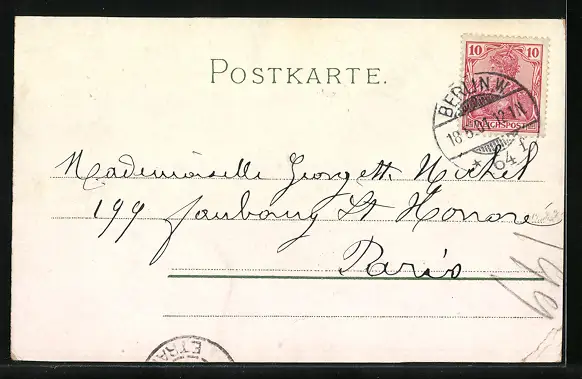 POSTKARTE.
10 10
REICHSPOST
BERLIN.W
64 f
Mademoiselle Georgette Michel
199 faubourg St Honoré
Paris
ETRA